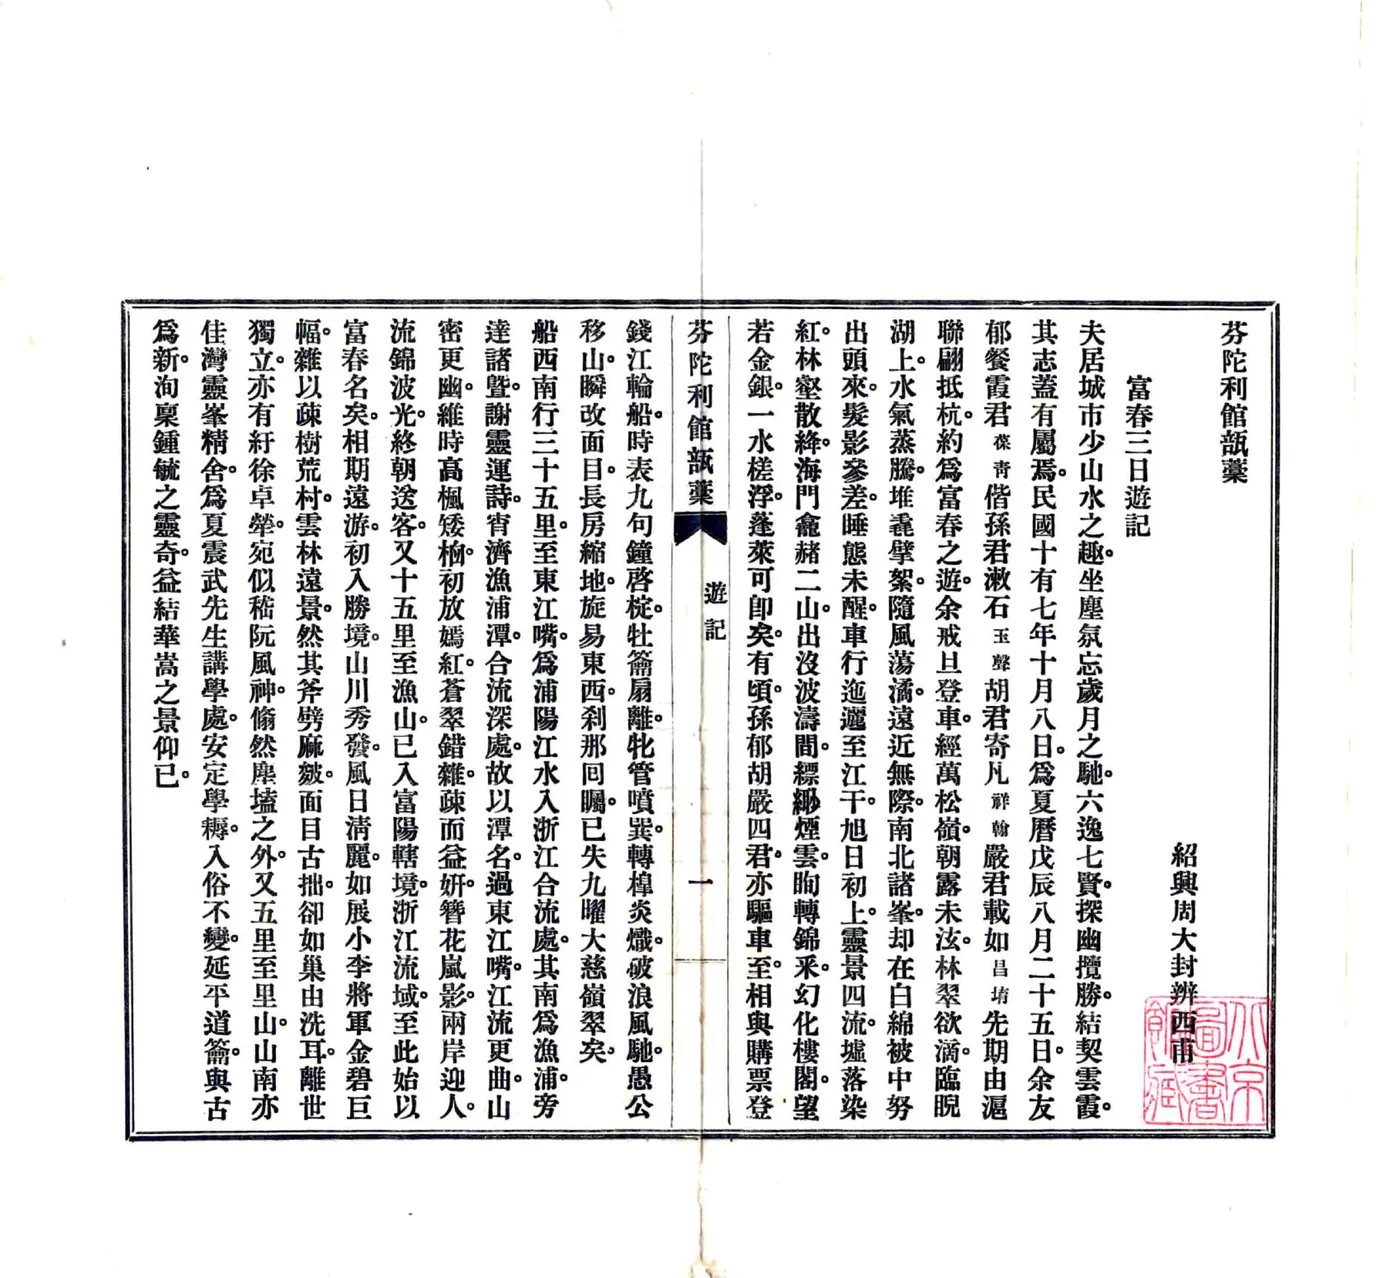 芬陀利館瓿藁
紹興周大封辨西甫
富春三日遊記
夫居城市少山水之趣。坐塵氛忘歲月之馳。六逸七賢。探幽攬勝。結契雲霞。
其志蓋有屬焉。民國十有七年十月八日。爲夏曆戊辰八月二十五日。余友
郁餐霞君葆青偕孫君漱石玉聲胡君寄凡祥翰嚴君載如昌堉先期由滬
聯翩抵杭。約爲富春之遊。余戒旦登車。經萬松嶺。朝露未泫。林翠欲滴。臨睨
湖上。水氣蒸騰。堆毳擘絮。隨風蕩潏。遠近無際。南北諸峯。却在白綿被中努
出頭來。髮影參差。睡態未醒。車行迤邐至江干。旭日初上。靈景四流。墟落染
紅。林壑散絳。海門龕赭二山。出沒波濤間。縹緲煙雲。眴轉錦釆。幻化樓閣。望
若金銀。一水槎浮。蓬萊可卽矣。有頃。孫郁胡嚴四君。亦驅車至。相與購票登
芬陀利館瓿藁
遊記
一
錢江輪船。時表九句鐘啓椗。牡籥扇離。牝管噴巽。轉樟炎熾。破浪風馳。愚公
移山。瞬改面目。長房縮地。旋易東西。刹那囘矚。已失九曜大慈嶺翠矣。
船西南行三十五里。至東江嘴。爲浦陽江水入浙江合流處。其南爲漁浦。旁
達諸曁。謝靈運詩。宵濟漁浦潭。合流深處。故以潭名。過東江嘴。江流更曲。山
密更幽。維時高楓矮槲。初放嫣紅。蒼翠錯雜。疎而益姸。簪花嵐影。兩岸迎人。
流錦波光。終朝送客。又十五里至漁山。已入富陽轄境。浙江流域。至此始以
富春名矣。相期遠游。初入勝境。山川秀發。風日淸麗。如展小李將軍金碧巨
幅。雜以疎樹荒村。雲林遠景。然其斧劈麻皴。面目古拙。卻如巢由洗耳。離世
獨立。亦有紆徐卓犖。宛似嵇阮風神。翛然塵壒之外。又五里至里山。山南亦
佳灣靈峯精舍。爲夏震武先生講學處。安定學耨。入俗不變。延平道籥。與古
爲新。洵稟鍾毓之靈奇。益結華嵩之景仰已。